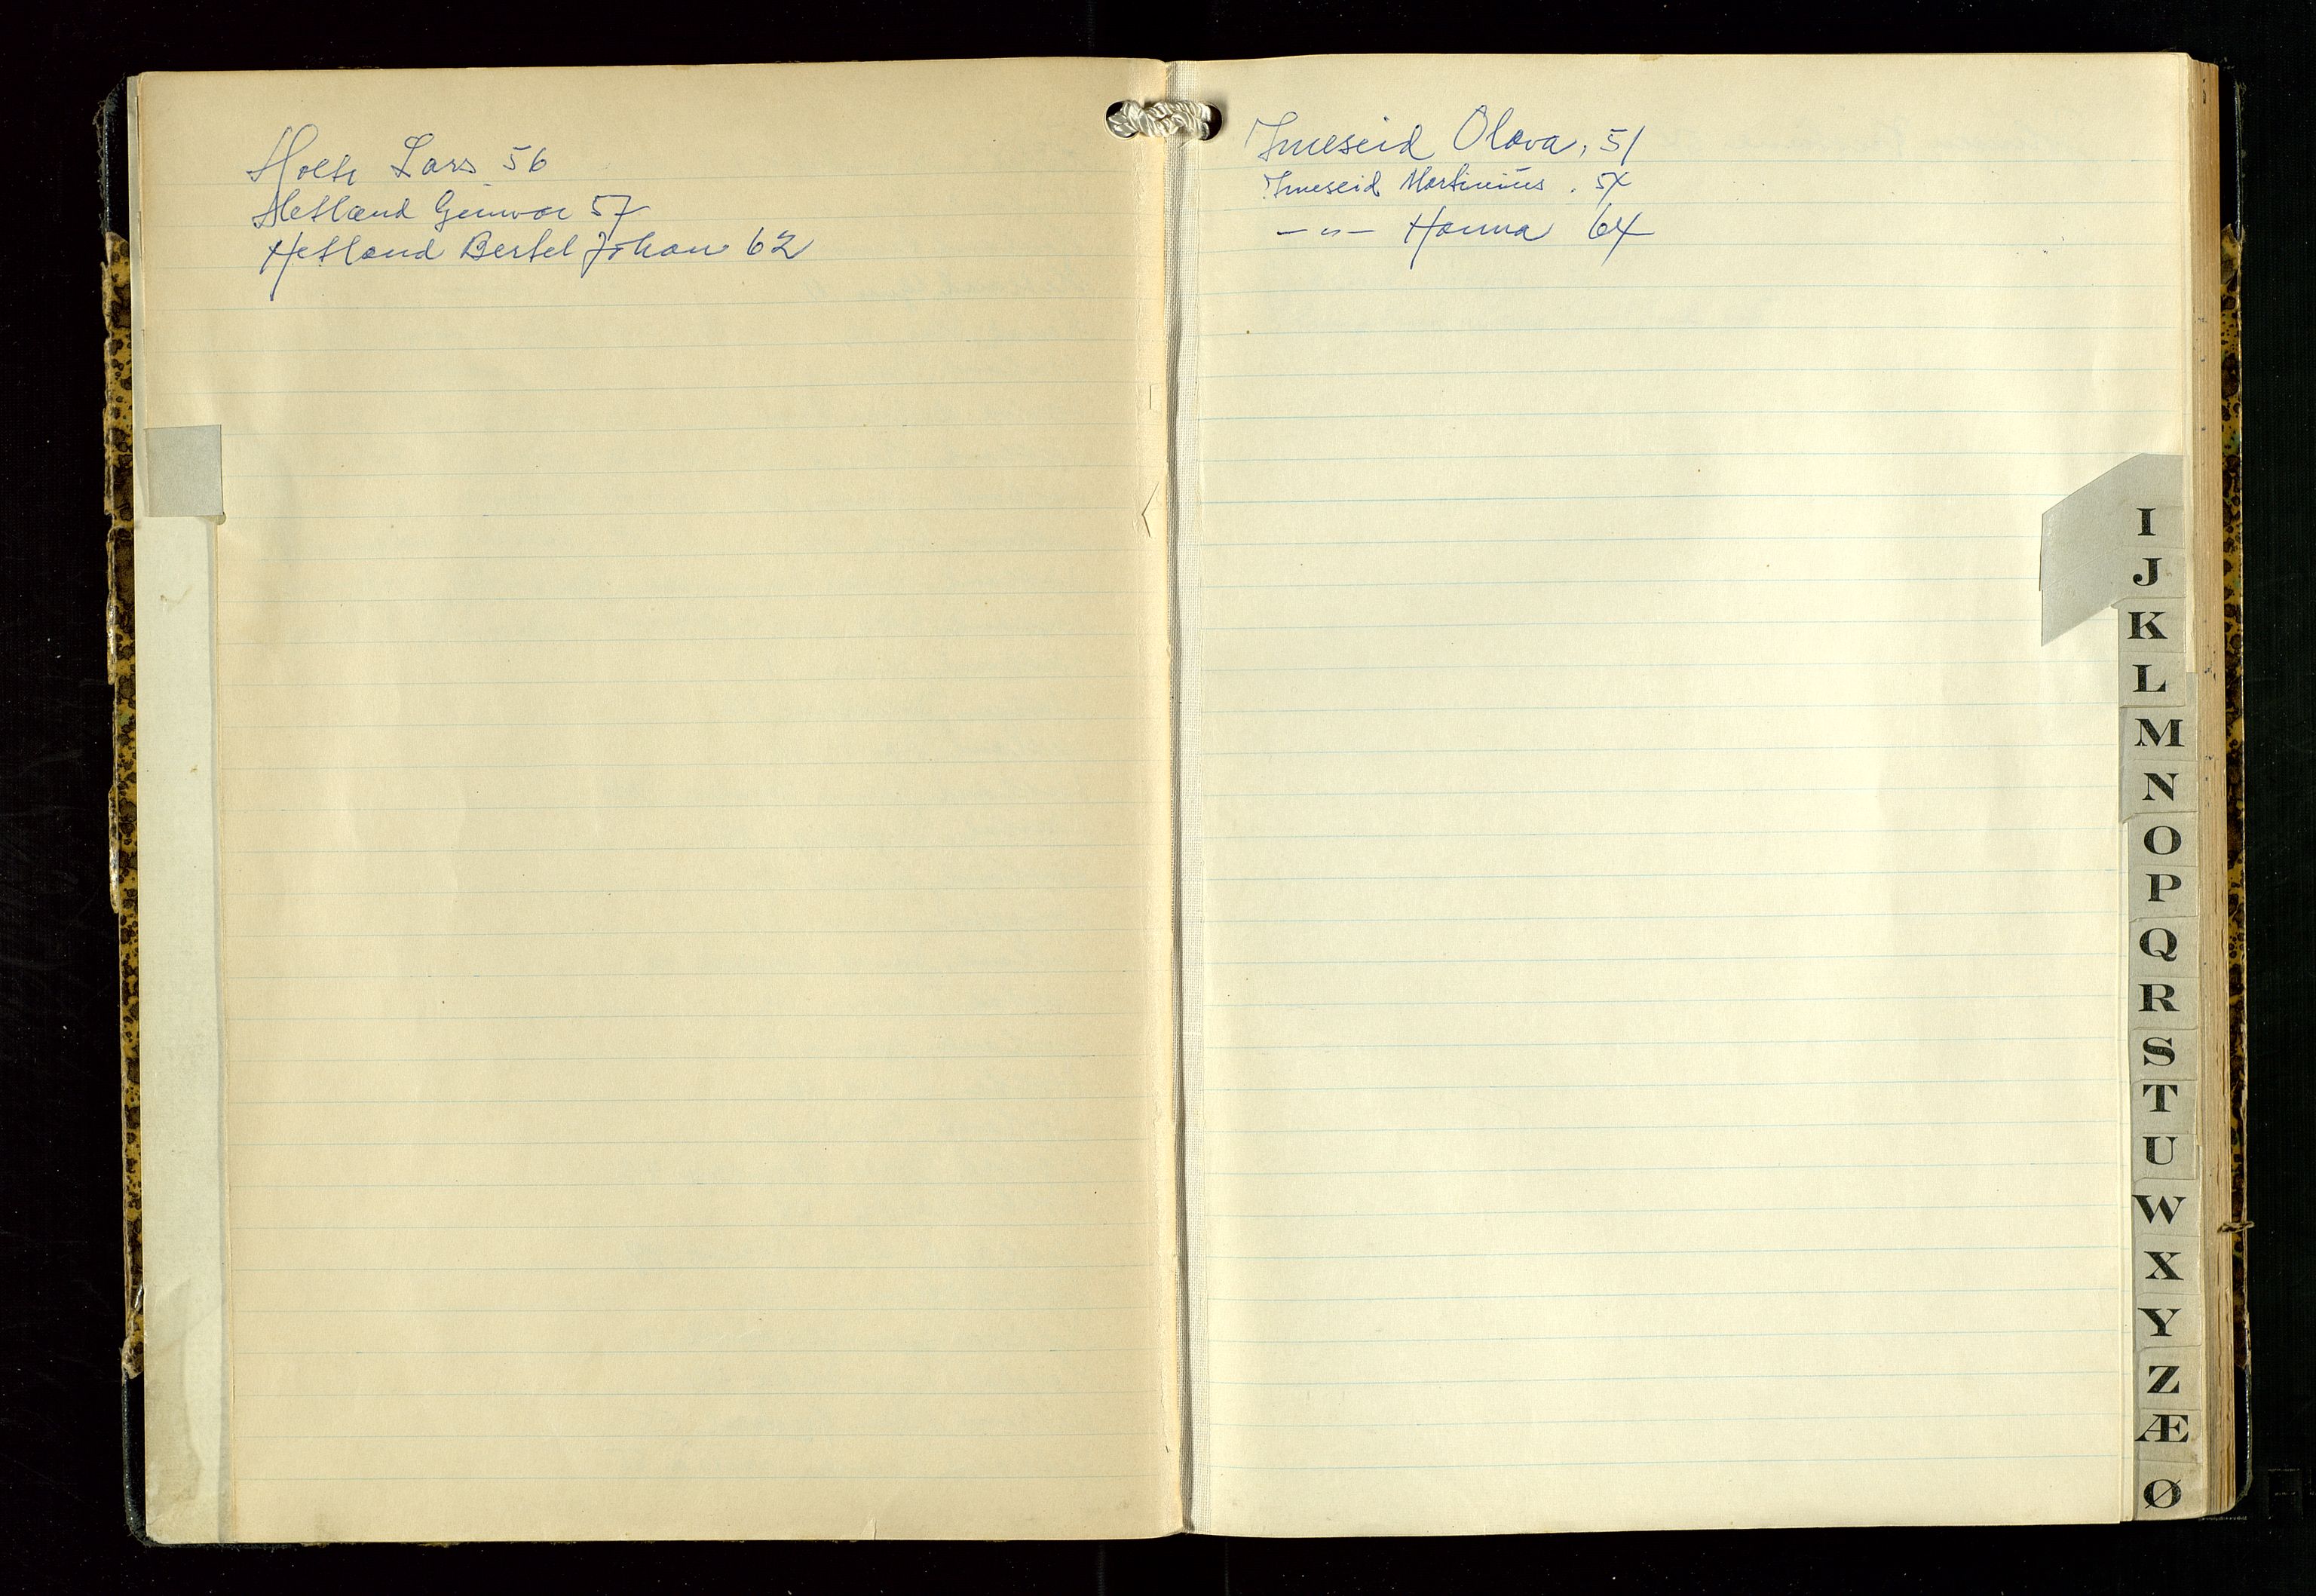 Holte Lars 56
Hetland Gunvor 57
Hetland Bertel Johan 62
Imeseid Olava, 51
Imeseid Martinius. 54
— " — Hanna 64
I
J
K
L
M
N
O
P
Q
R
S
T
U
W
X
Y
Z
Æ
Ø